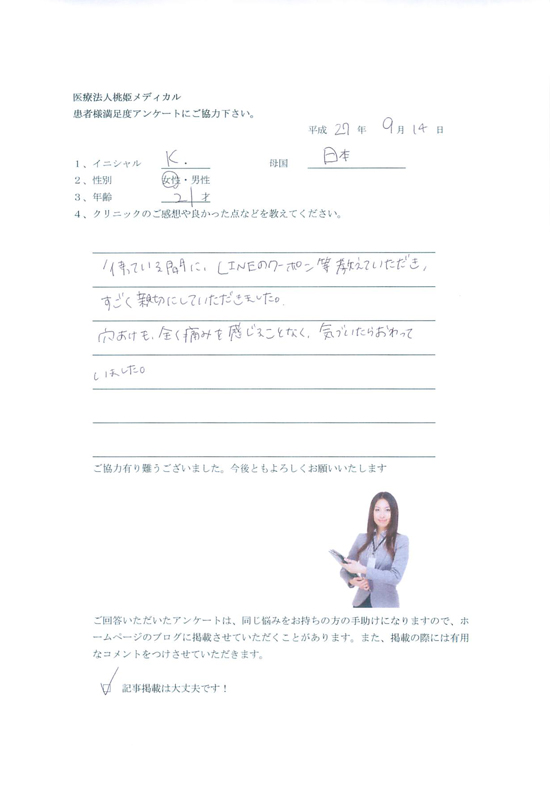 医療法人桃姫メディカル
患者様満足度アンケートにご協力下さい。
平成 27 年 9 月 14 日
1、イニシャル K. 母国 日本
2、性別 女性・男性
3、年齢 21 才
4、クリニックのご感想や良かった点などを教えてください。
待っている間に、LINEのクーポン等教えていただき、
すごく親切にしていただきました。
穴あけも、全く痛みを感じることなく、気づいたらおわって
いました。
ご協力有り難うございました。今後ともよろしくお願いいたします
ご回答いただいたアンケートは、同じ悩みをお持ちの方の手助けになりますので、ホ
ームページのブログに掲載させていただくことがあります。また、掲載の際には有用
なコメントをつけさせていただきます。
記事掲載は大丈夫です！